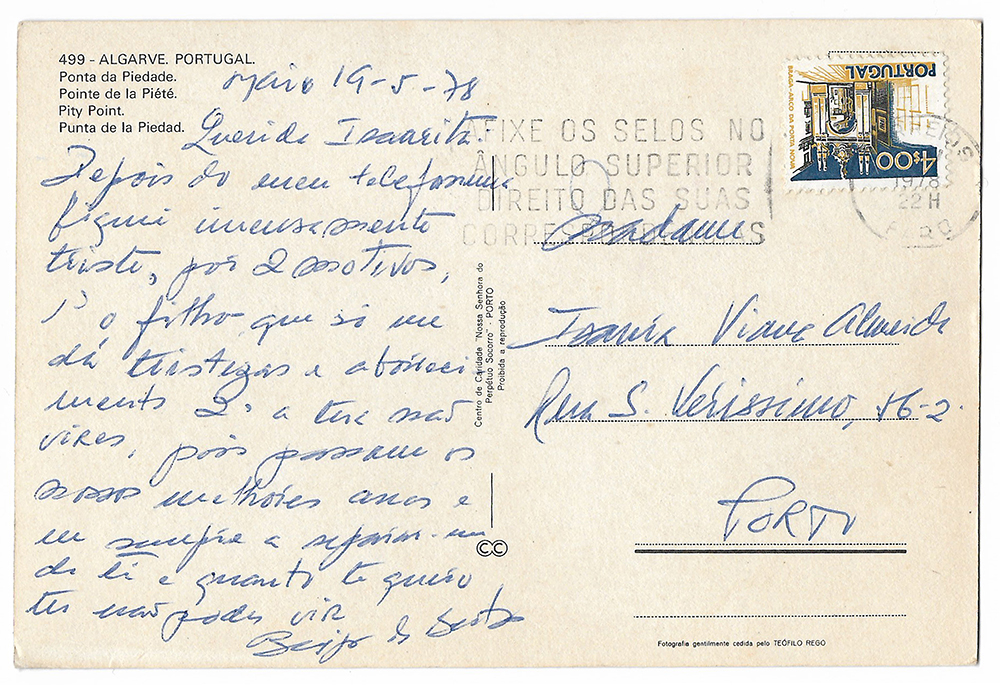 499 - ALGARVE. PORTUGAL.
Ponta da Piedade.
Pointe de la Piété.
Pity Point.
Punta de la Piedad.
19-5-78
Querida Isaurita
Depois do meu telefonema
fiquei imensamente
triste, por 2 motivos,
1º o filho que só me
dá tristezas e aborreci
mento 2º a tua não
vires, pois passam os
nossos melhores anos e
eu sempre a separar-me
de ti e quanto te quero
tu não podes vir
Beijo de
AFIXE OS SELOS NO
ÂNGULO SUPERIOR
DIREITO DAS SUAS
PORTUGAL
BRAGA-ARCO DA PORTA NOVA
4$00
1978
22 H
Madame
Isaura Viana Almeida
Rua S. Veríssimo, 16-2.
PORTO
Centro de Caridade "Nossa Senhora do
Perpétuo Socorro" - PORTO
Proibida a reprodução
CC
Fotografia gentilmente cedida pelo TEÓFILO REGO